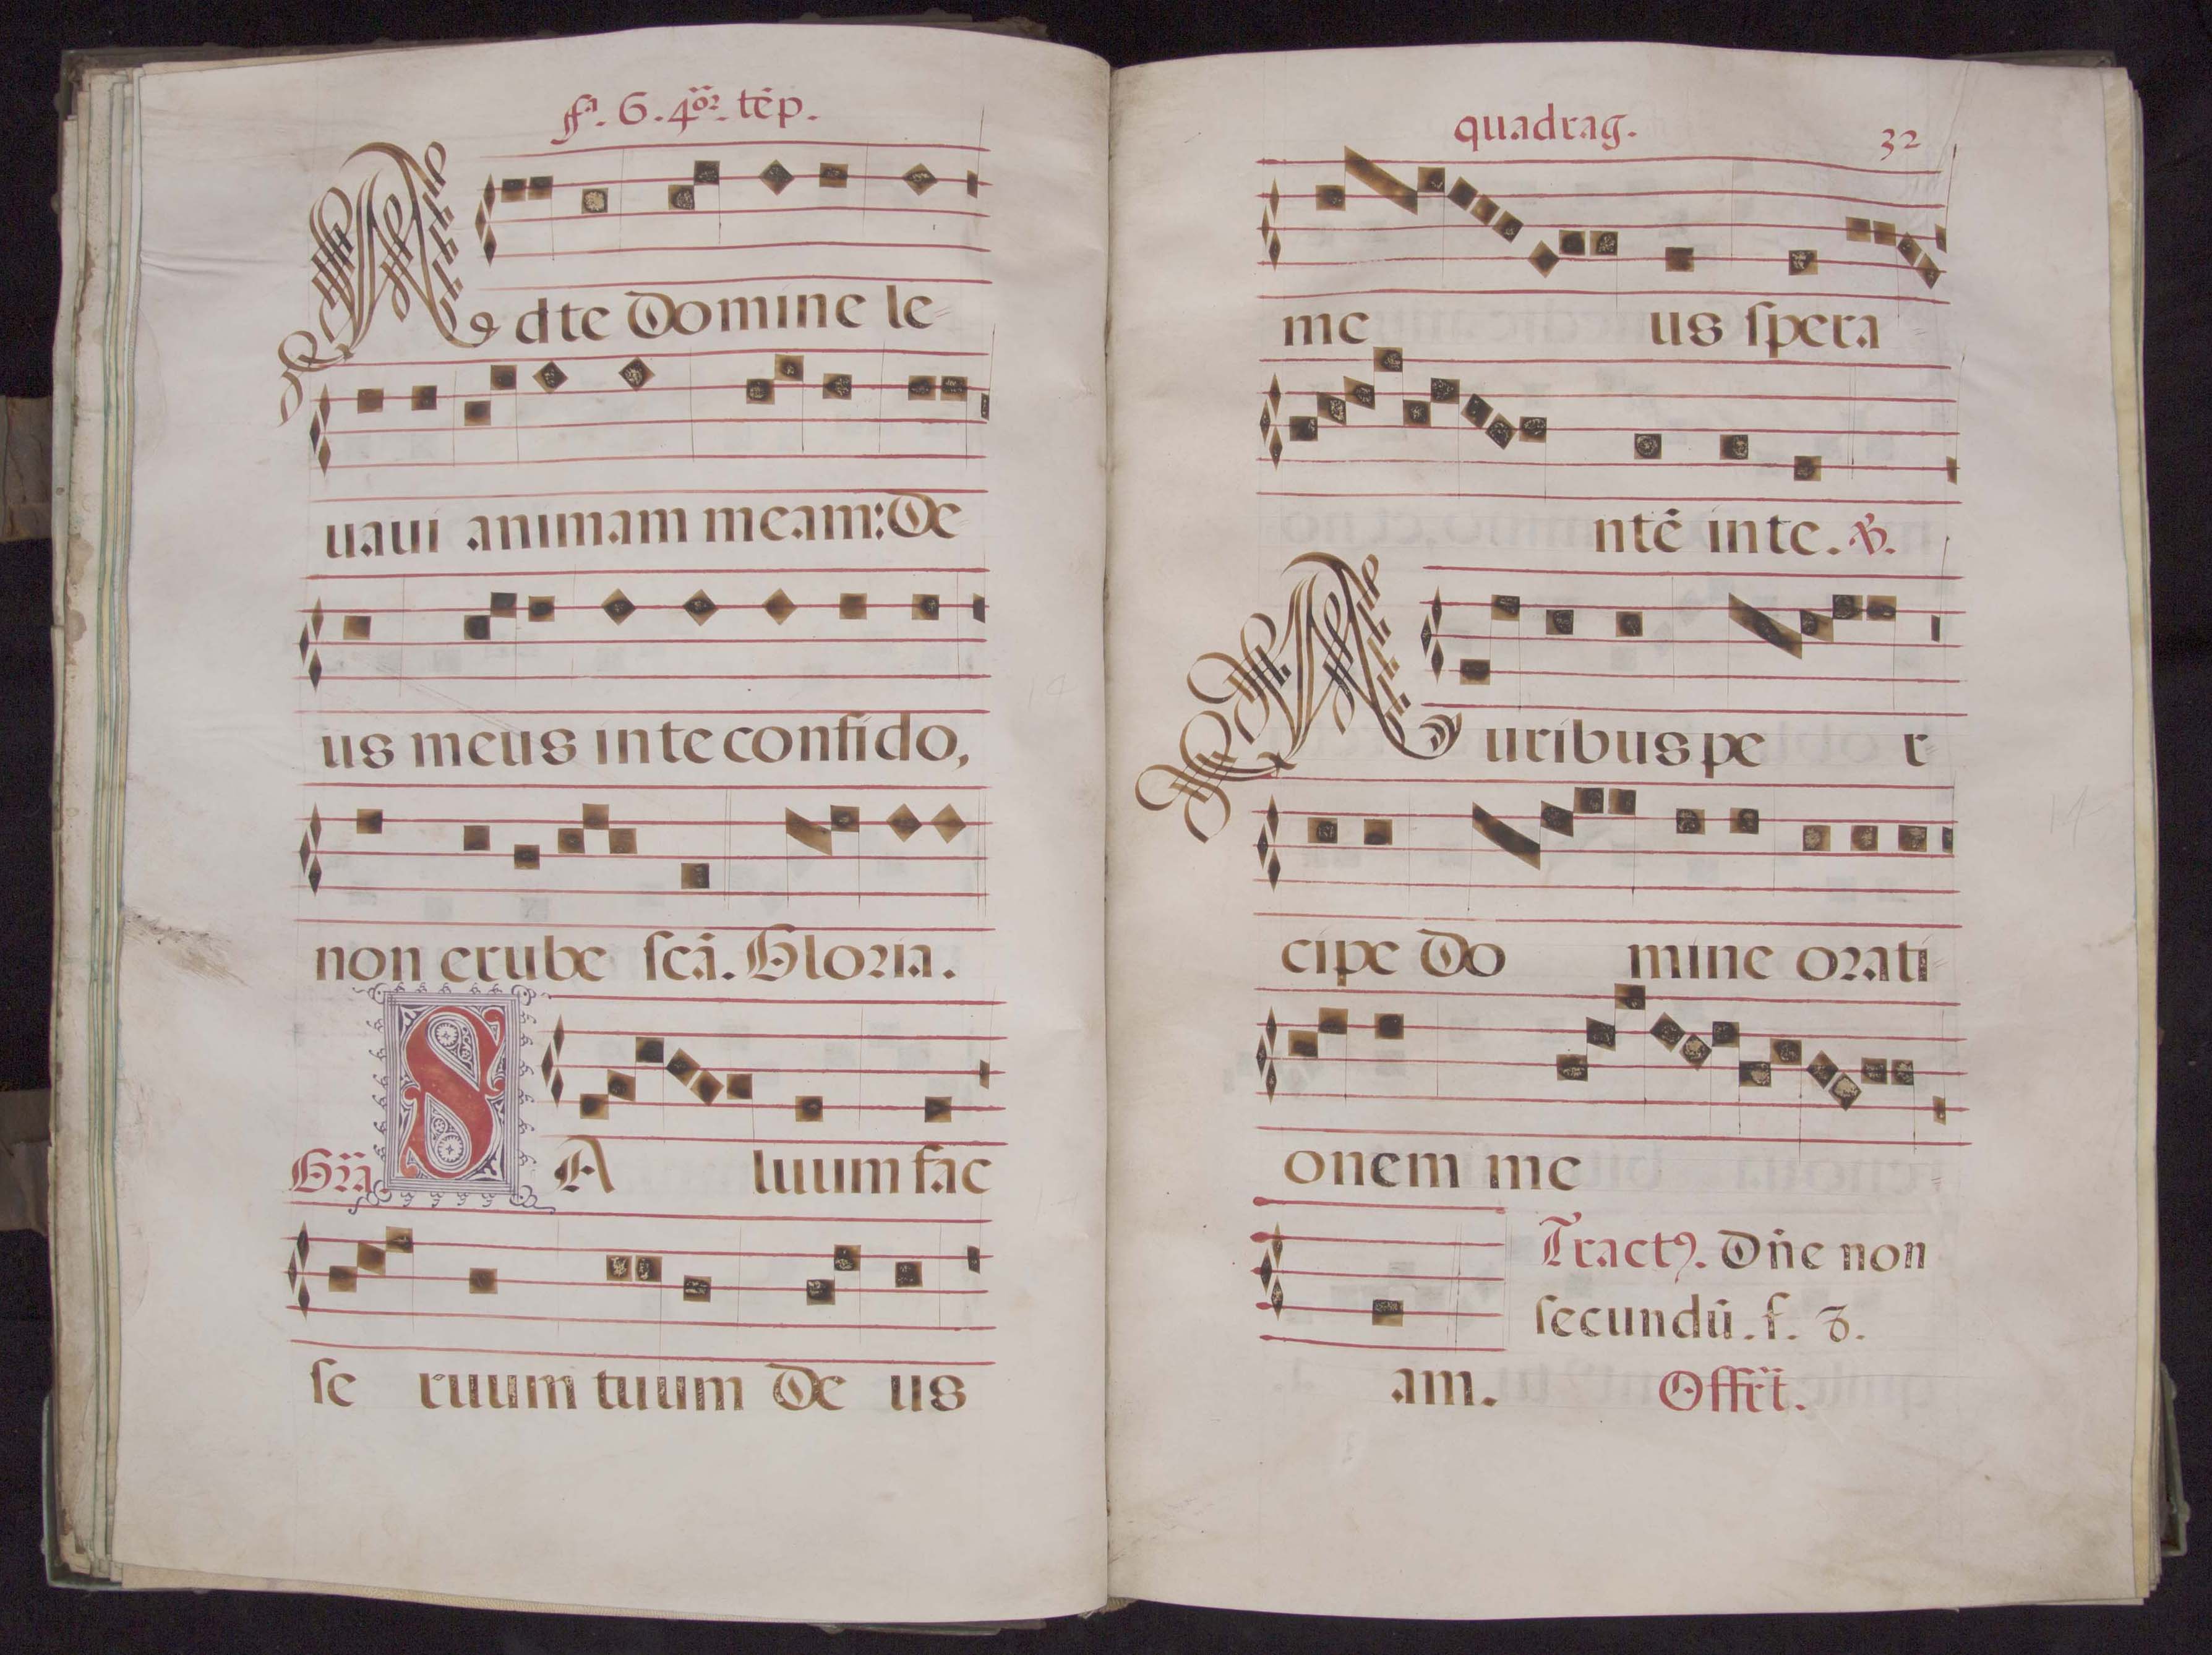 fª. 6. 4or. tēp.
Ad te Domine le=
uaui animam meam: De=
us meus in te confido,
non erube scā. Gloria.
Gra. SA luum fac
se ruum tuum De us
quadrag. 32
me us spera
ntē in te. V.
Auribus pe r=
cipe Do mine orati=
onem me
Tractꝯ. Dñe non
secundū. f. 3.
am. Offrt.